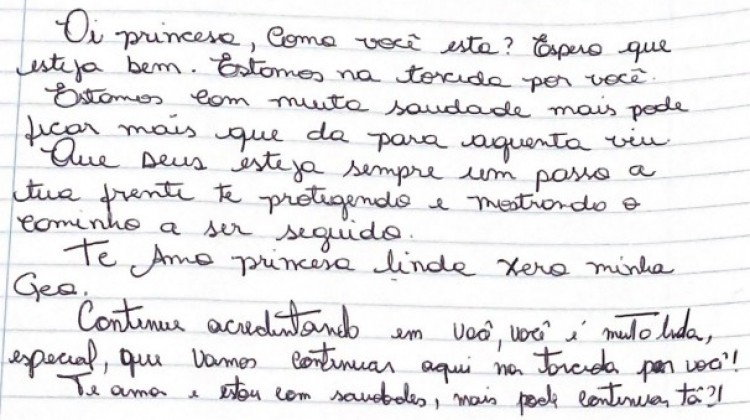 Oi princesa, Como você esta? Espero que
esteja bem. Estamos na torcida por você.
Estamos com muita saudade mais pode
ficar mais que da para aguenta viu.
Que Deus esteja sempre um passo a
tua frente te protegendo e mostrando o
caminho a ser seguido.
Te Amo princesa linda xero minha
Geo.
Continue acreditando em você, você é muito linda,
especial, que vamos continuar aqui na torcida por você!
Te amo e estou com saudades, mais pode continuar tá?!